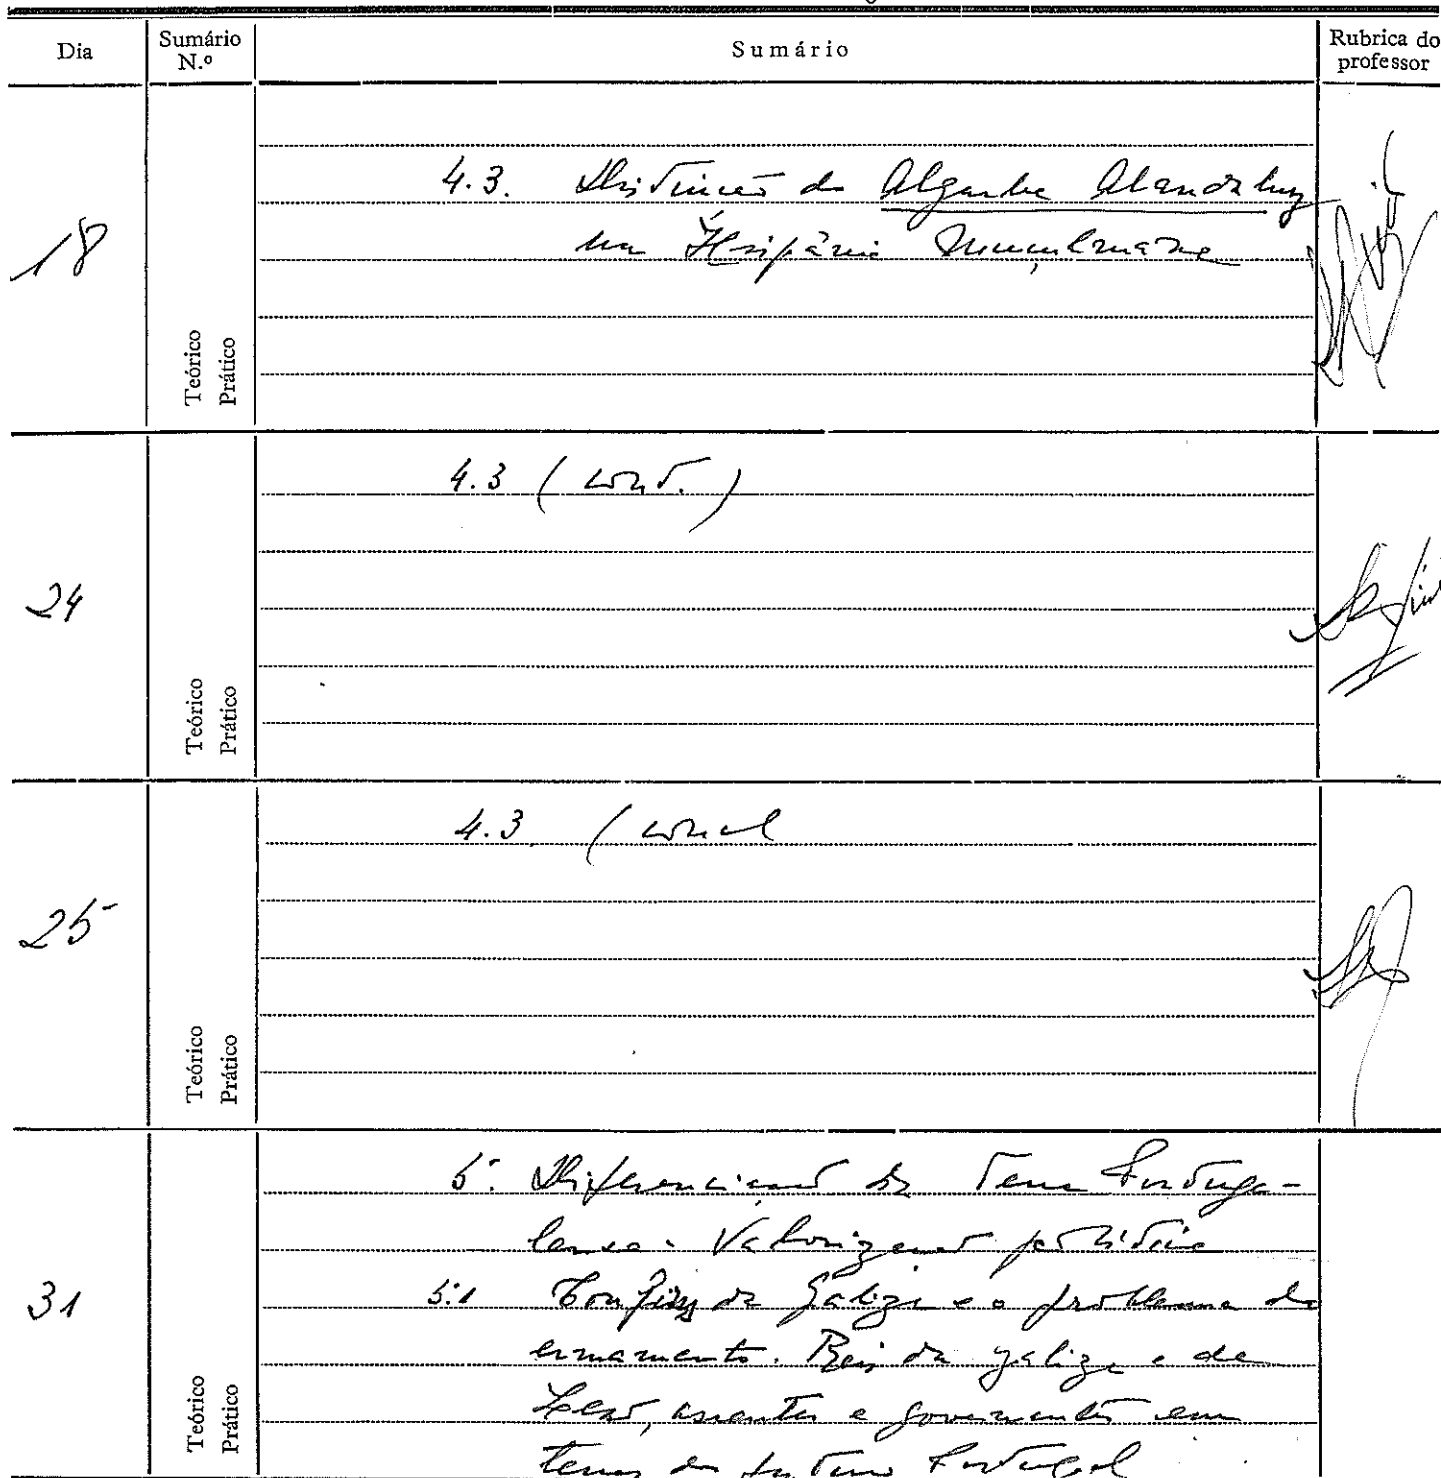 Dia
Sumário N.º
Sumário
Rubrica do professor
18
Teórico
Prático
4.3. Distinção do Algarbe Alandaluz
na Hispânia Muçulmana
24
Teórico
Prático
4.3 (cont.)
25
Teórico
Prático
4.3 (concl
31
Teórico
Prático
5. Diferenciação da Terra Portuga-
lense. Valorização política
5.1 Confins da Galiza e o problema do
ermamento. Reis da Galiza e de
Leão, assentes e governando em
terras do futuro Portugal